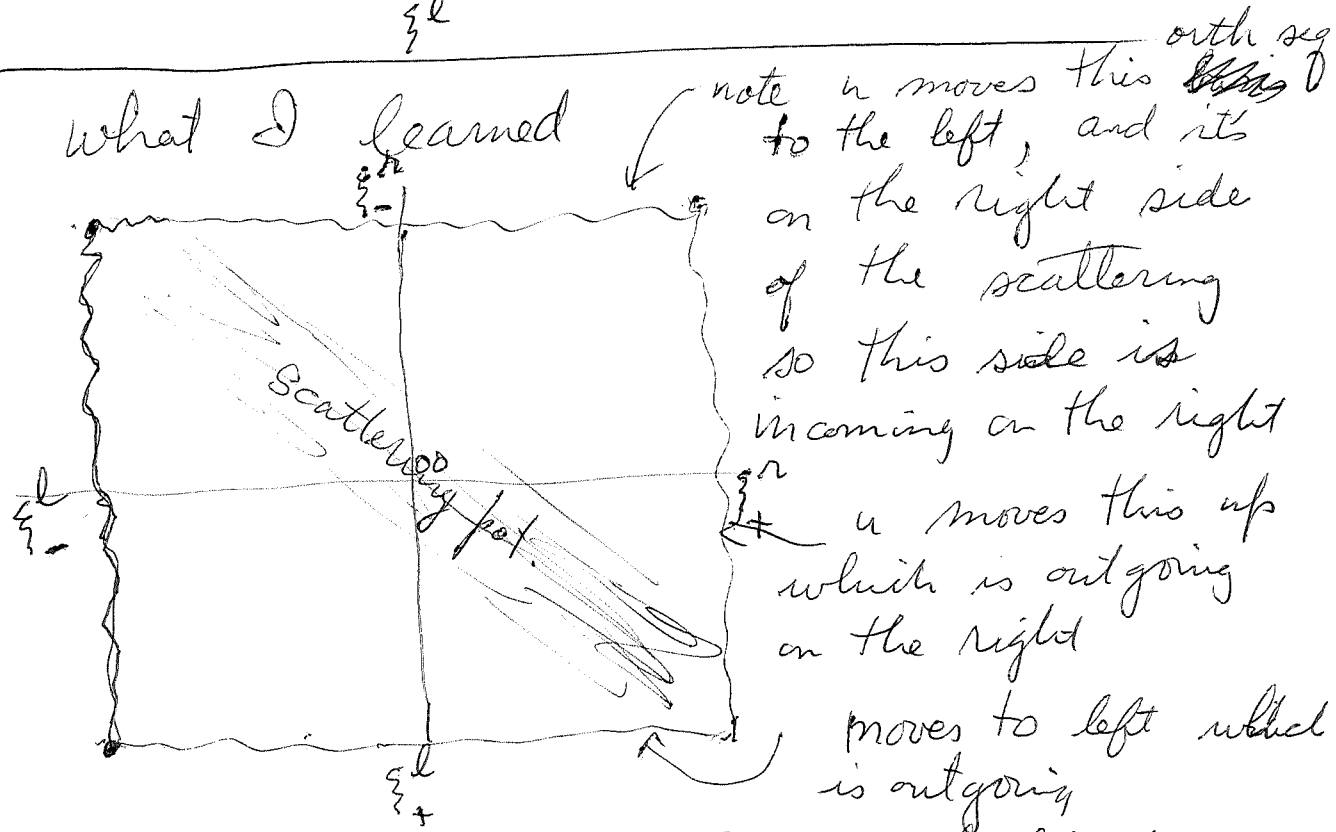 ξ^l
orth seq
what I learned
note u moves this
to the left, and it's
on the right side
of the scattering
so this side is
incoming on the right
ξ_-^r
scattering pot.
∞
ξ_-^l
ξ_+^r
u moves this up
which is outgoing
on the right
moves to left which
is outgoing
ξ_+^l